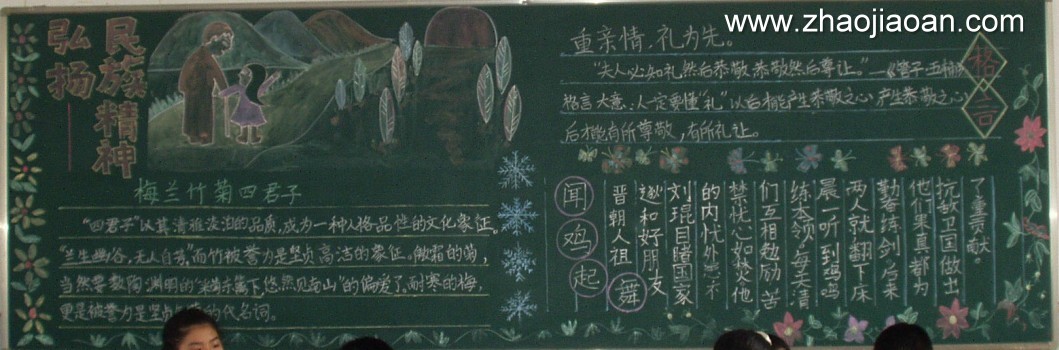 www.zhaojiaoan.com
弘扬
民族精神
梅兰竹菊四君子
"四君子"以其清雅淡泊的品质,成为一种人格品性的文化象征。
"兰生幽谷,无人自芳"而竹被誉为是坚贞高洁的象征。傲霜的菊,
当然要数陶渊明的"采菊东篱下,悠然见南山"的偏爱了,耐寒的梅,
更是被誉为是坚的代名词。
重亲情、礼为先。
"夫人必知礼然后恭敬,恭敬然后尊让。"—《管子·五辅》
格言大意:人一定要懂"礼"以后才能产生恭敬之心,产生恭敬之心
后才能有所尊敬,有所礼让。
格言
闻鸡起舞
晋朝人祖
逖和好朋友
刘琨目睹国家
的内忧外患不
禁忧心如焚他
们互相勉励苦
练本领,每天清
晨一听到鸡鸣
两人就翻下床
勤奋练剑,后来
他们果真都为
抗敌卫国做出
了重要贡献。